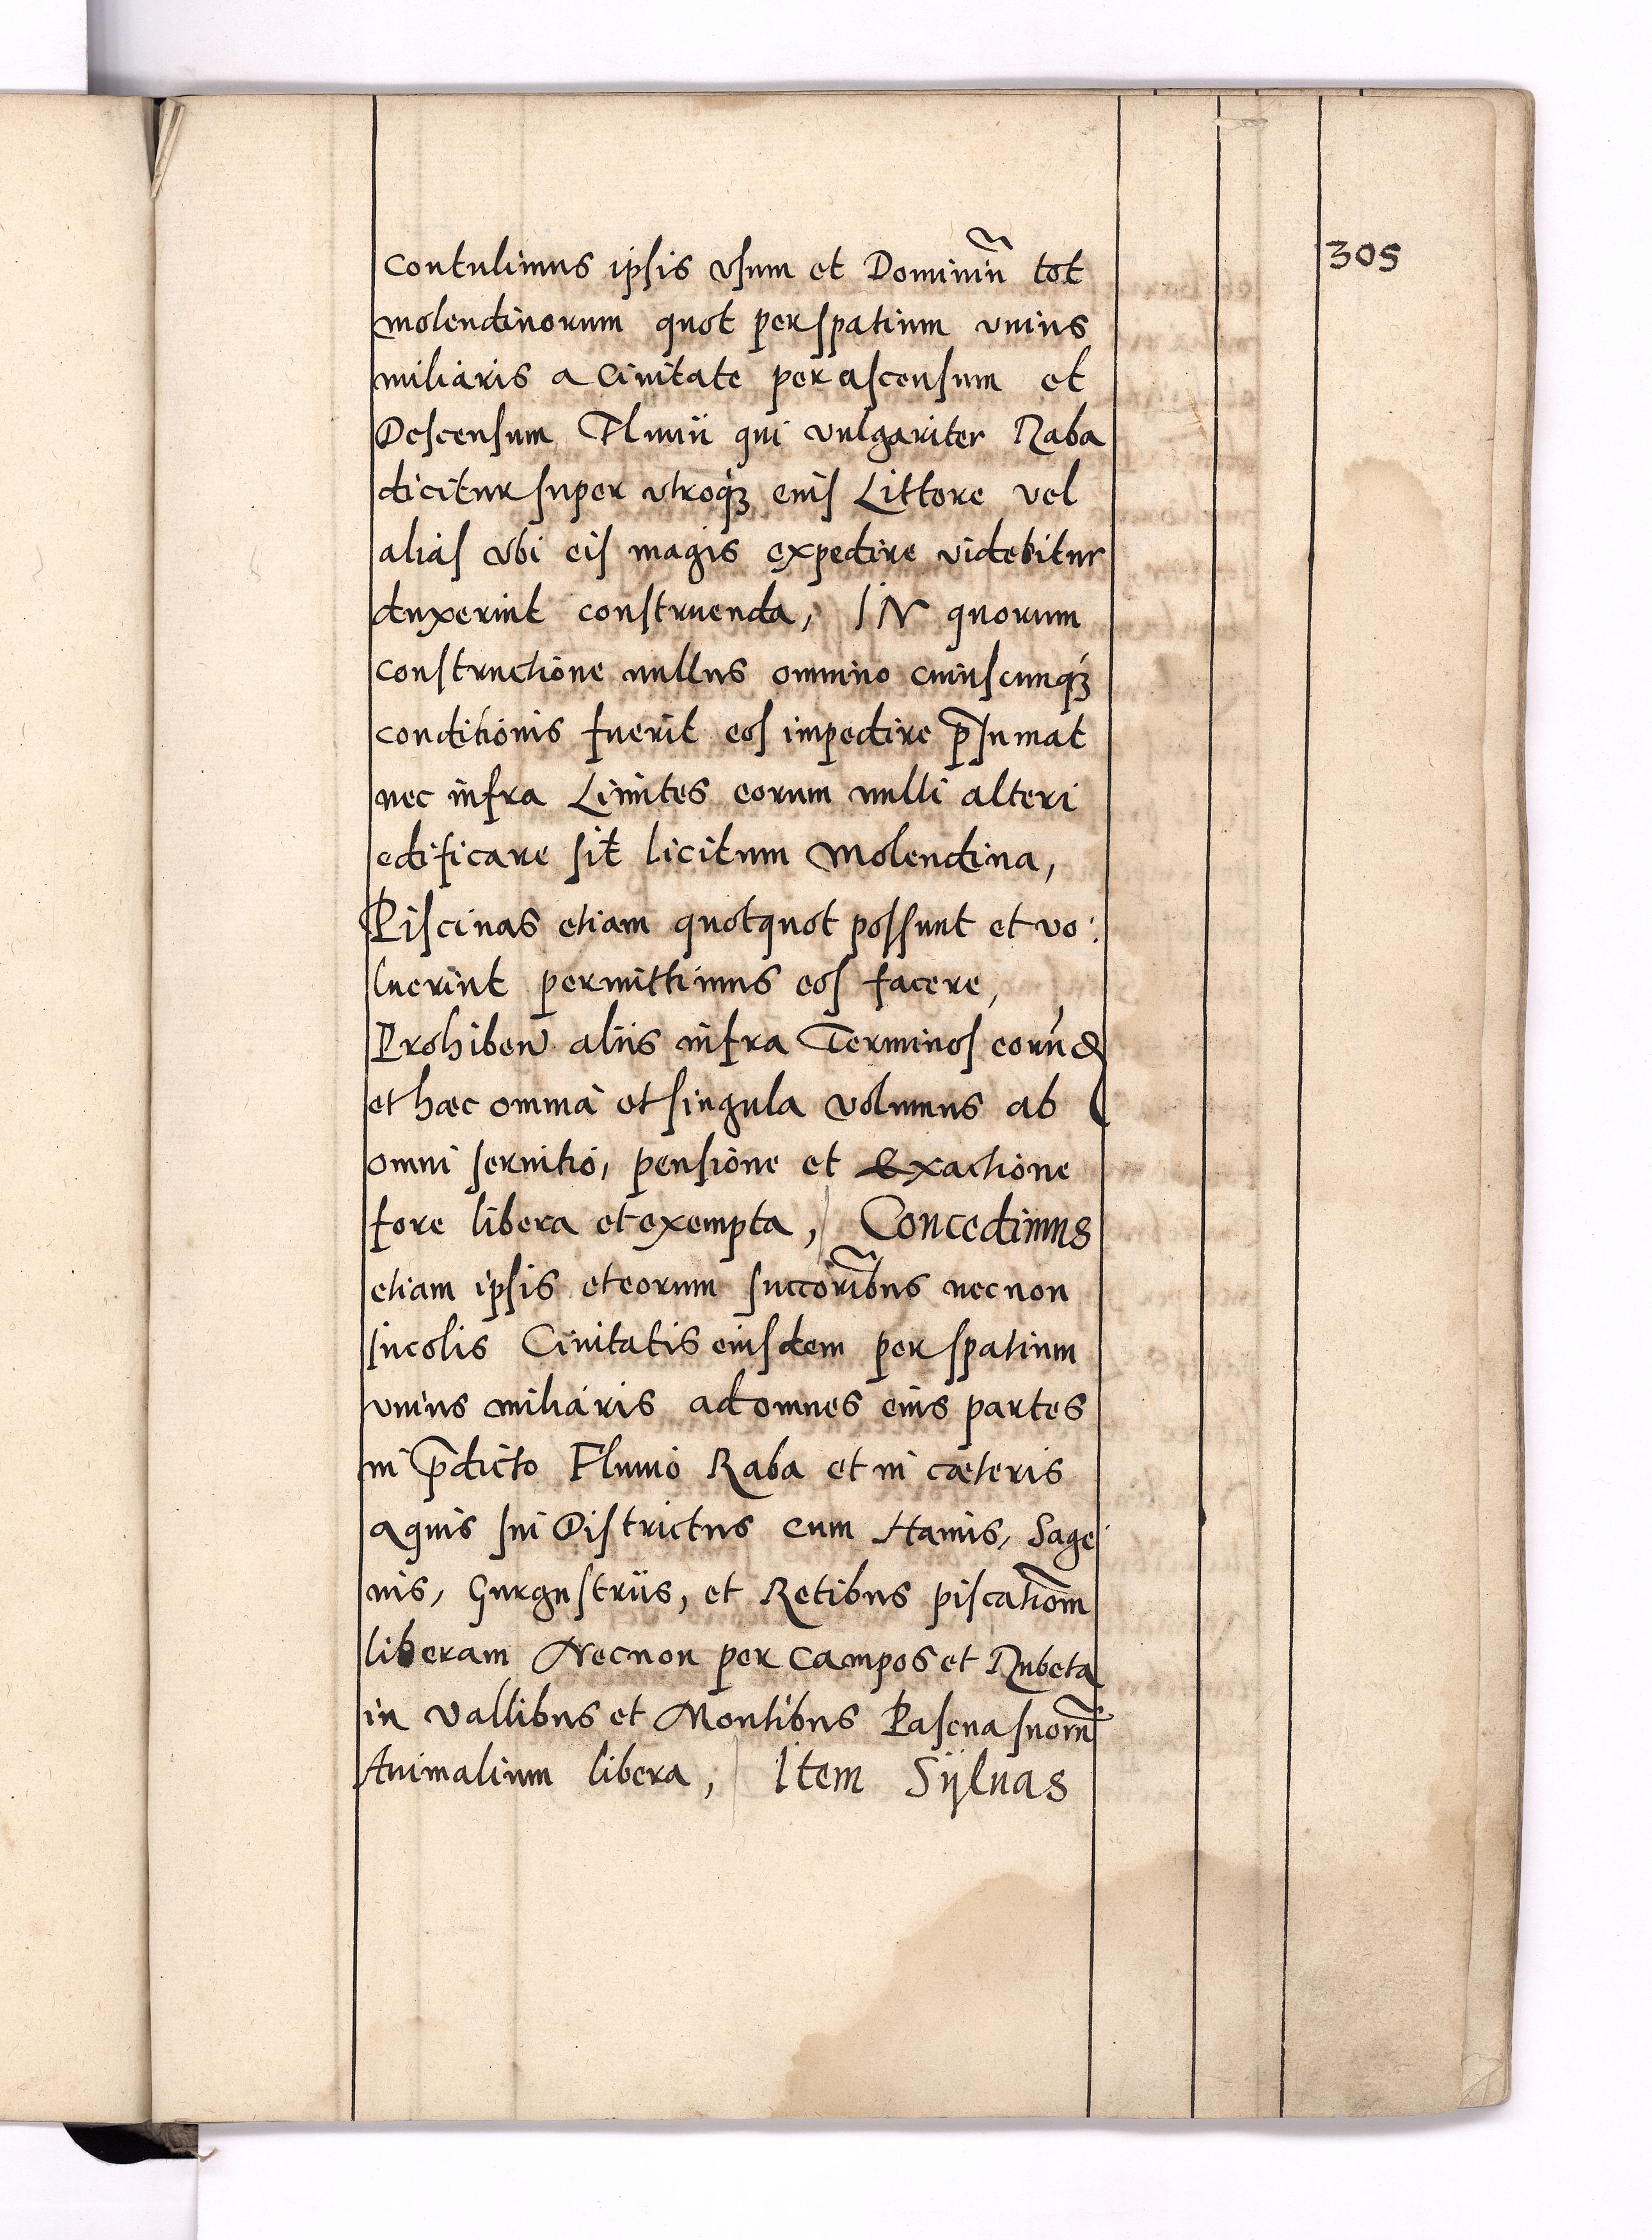 305
contulimus ipsis vsum et Dominiũ tot
molendinorum quot per spatium vnius
miliaris a Ciuitate per ascensum et
Descensum Fluuii qui vulgariter Raba
dicitur super vtroqꝫ eius Littore vel
alias vbi eis magis expedire videbitur
duxerint construenda, IN quorum
constructione nullus omnino cuiuscunqꝫ
conditionis fuerit eos impedire p̄sumat
nec infra Limites eorum nulli alteri
edificare sit licitum Molendina,
Piscinas etiam quotquot possunt et vo:
luerint permittimus eos facere,
Prohiben̄ aliis infra Terminos eorũd
et hæc omnia et singula volumus ab
omni seruitio, pensione et Exactione
fore libera et exempta, Concedimus
etiam ipsis et eorum succorib̃us necnon
Incolis Ciuitatis eiusdem per spatium
vnius miliaris ad omnes eius partes
in p̄dicto Fluuio Raba et in cæteris
aquis sui Districtus cum Hamis, Sage
nis, Gurgustriis, et Retibus piscatiom̄
liberam Necnon per Campos et Rubeta
in Vallibus et Montibus Pascua suorũ
Animalium libera, Item Sÿluas